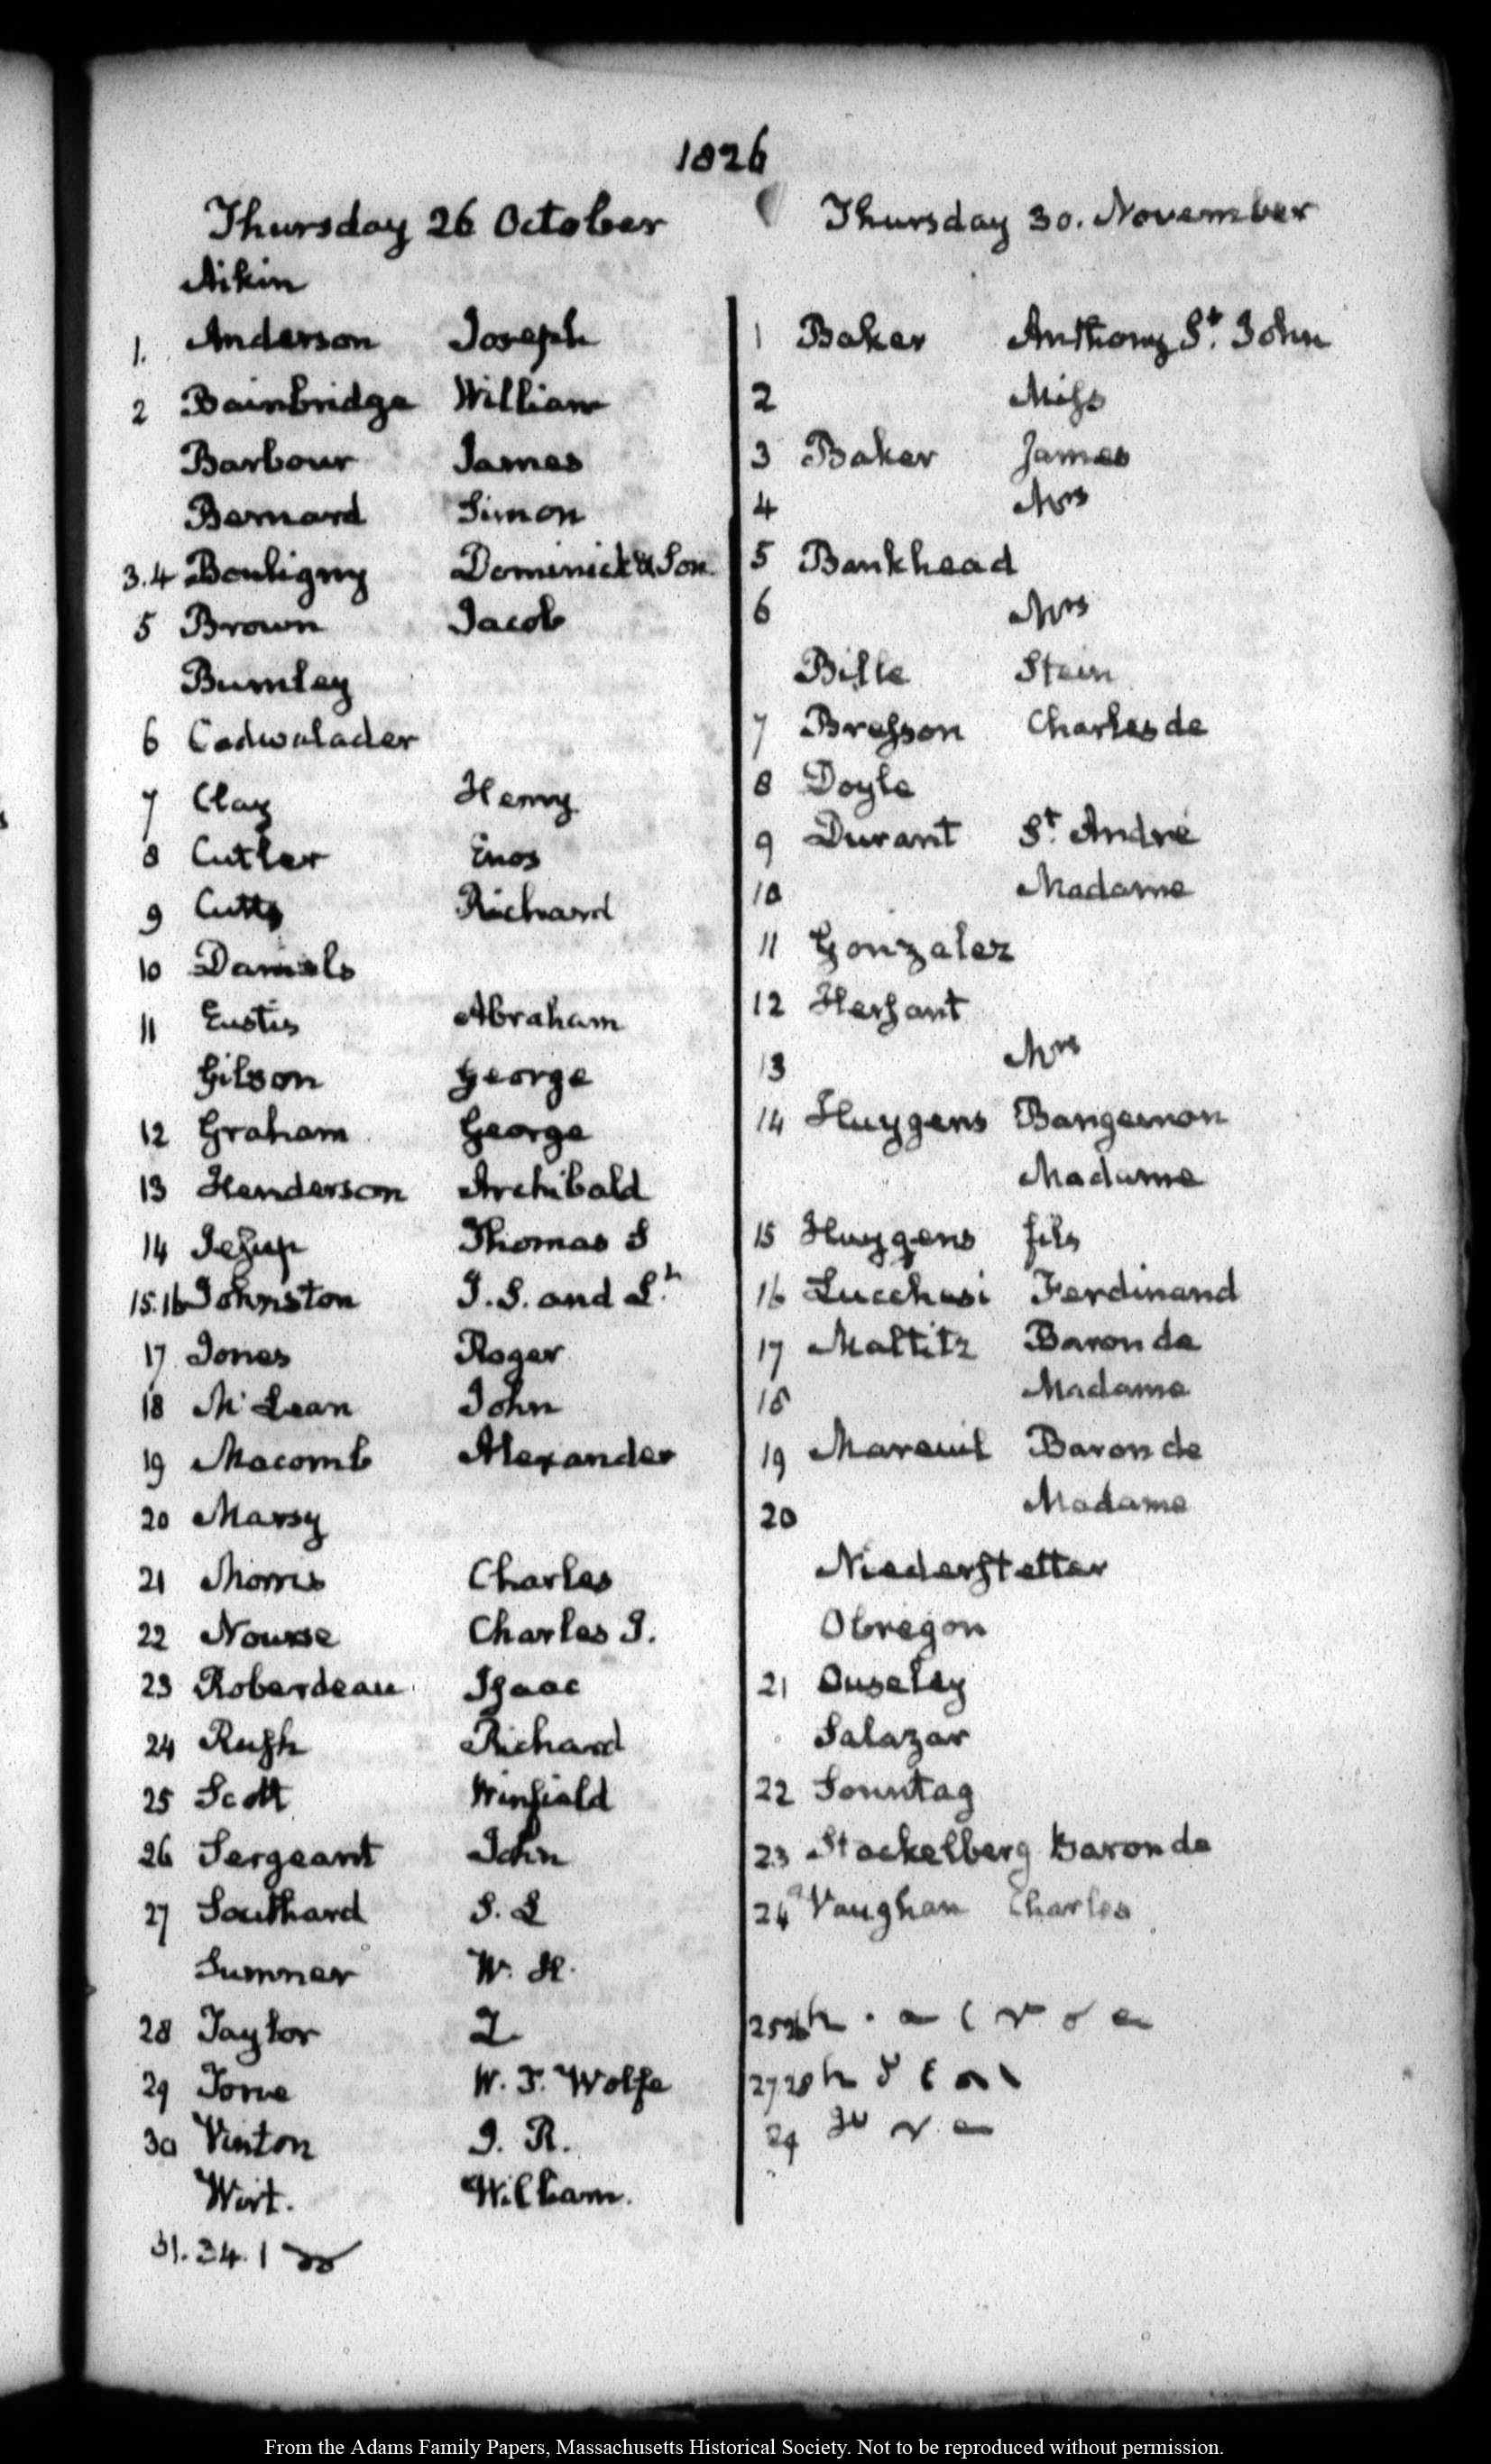 1826
Thursday 26 October
Aikin
1. Anderson Joseph
2 Bainbridge William
Barbour James
Bernard Simon
3.4 Bouligny Dominick & Son
5 Brown Jacob
Bumley
6 Cadwalader
7 Clay Henry
8 Cutler Enos
9 Cutts Richard
10 Daniels
11 Eustis Abraham
Gibson George
12 Graham George
13 Henderson Archibald
14 Jessup Thomas S
15.16 Johnston J. S. and
17 Jones Roger
18 McLean John
19 Macomb Alexander
20 Marsy
21 Morris Charles
22 Nourse Charles J.
23 Roberdeau Isaac
24 Rush Richard
25 Scott Winfield
26 Sergeant John
27 Southard S. L
Sumner W. H.
28 Taylor Z
29 Tone W. T. Wolfe
30 Vinton J. R.
Wirt. William.
31.34. 1
Thursday 30. November
1 Baker Anthony St. John
2 Miss
3 Baker James
4 Mrs
5 Bankhead
6 Mrs
Bille Steen
7 Bresson Charles de
8 Doyle
9 Durant St. André
10 Madame
11 Gonzalez
12 Hersant
13 Mrs
14 Huygens Bangeman
Madame
15 Huygens fils
16 Lucchesi Ferdinand
17 Maltitz Baron de
18 Madame
19 Mareuil Baron de
20 Madame
Niederstetter
Obregon
21 Ouseley
Salazar
22 Sonntag
23 Stackelberg Baron de
24 Vaughan Charles
25 26
27 28
29
From the Adams Family Papers, Massachusetts Historical Society. Not to be reproduced without permission.